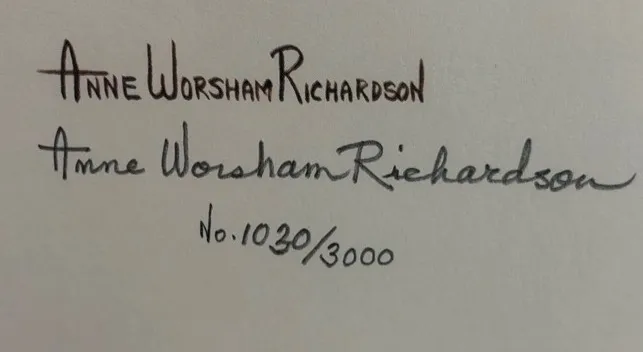 ANNE WORSHAM RICHARDSON
Anne Worsham Richardson
No. 1030/3000